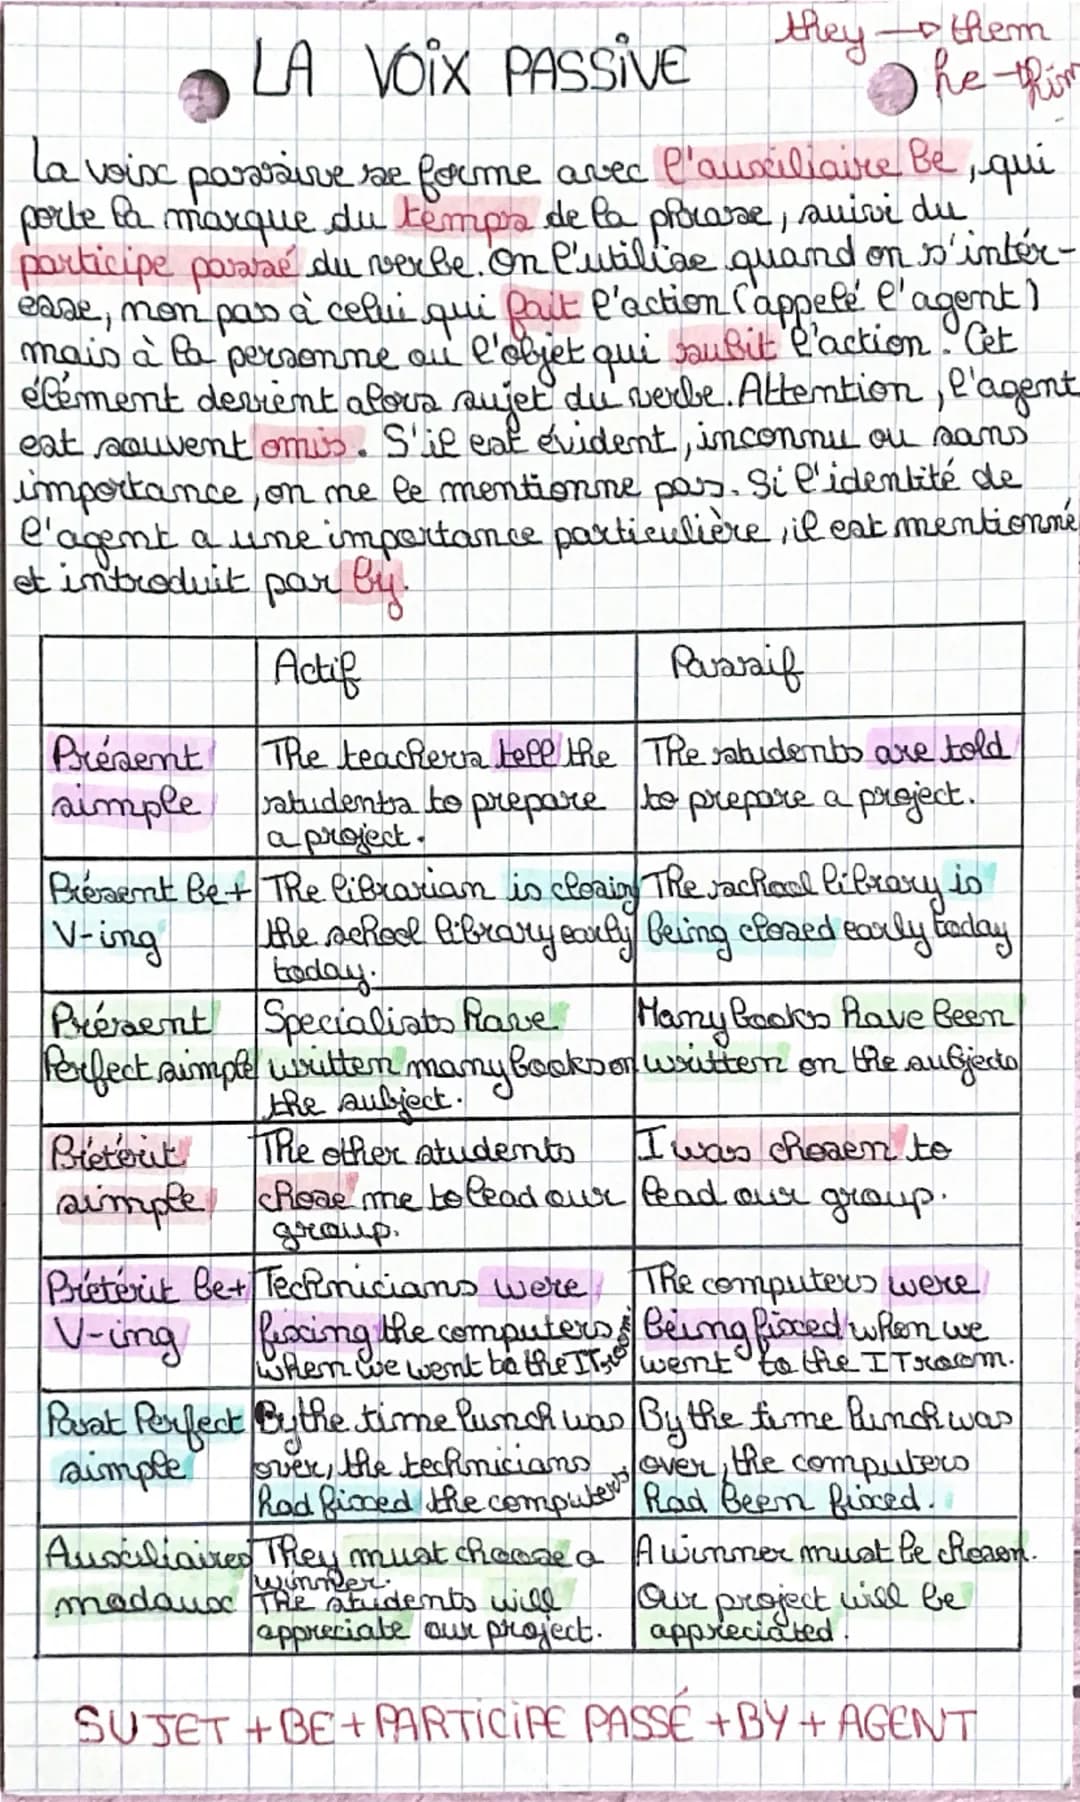 they → them
LA VOIX PASSIVE
he → him
La voix passive se forme avec l'auxiliaire be, qui
porte la marque du temps de la phrase, suivi du
participe passé du verbe. On l'utilise quand on s'intér-
esse, non pas à celui qui fait l'action (appelé l'agent)
mais à la personne ou l'objet qui subit l'action. Cet
élément devient alors sujet du verbe. Attention, l'agent
est souvent omis. S'il est évident, inconnu ou sans
importance, on ne le mentionne pas. Si l'identité de
l'agent a une importance particulière, il est mentionné
et introduit par by.
Actif Passif
Présent The teachers tell the The students are told
simple students to prepare to prepare a project.
a project.
Présent be+ The librarian is closing The school library is
V-ing the school library early being closed early today
today.
Présent Specialists have Many books have been
Perfect simple written many books on written on the subjects
the subject.
Prétérit The other students I was chosen to
simple chose me to lead our lead our group.
group.
Prétérit be+ Technicians were The computers were
V-ing fixing the computers being fixed when we
when we went to the IT room went to the IT room.
Past Perfect By the time lunch was By the time lunch was
simple over, the technicians over, the computers
had fixed the computers had been fixed.
Auxiliaires They must choose a A winner must be chosen.
winner.
modaux The students will Our project will be
appreciate our project. appreciated.
SUJET + BE + PARTICIPE PASSÉ + BY + AGENT